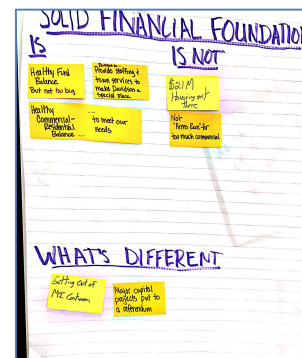 SOLID FINANCIAL FOUNDATION
IS
IS NOT
Healthy Fund
Balance
But not too big
Provide staffing &
town services to
make Davidson a
special place
$21M
Housing out
there
Healthy
Commercial-
Residential
Balance ...
... to meet our
needs
Not
"Arms Race" for
too much commercial
WHAT'S DIFFERENT
Getting out of
MI Connection
Major capital
projects put to
a referendum